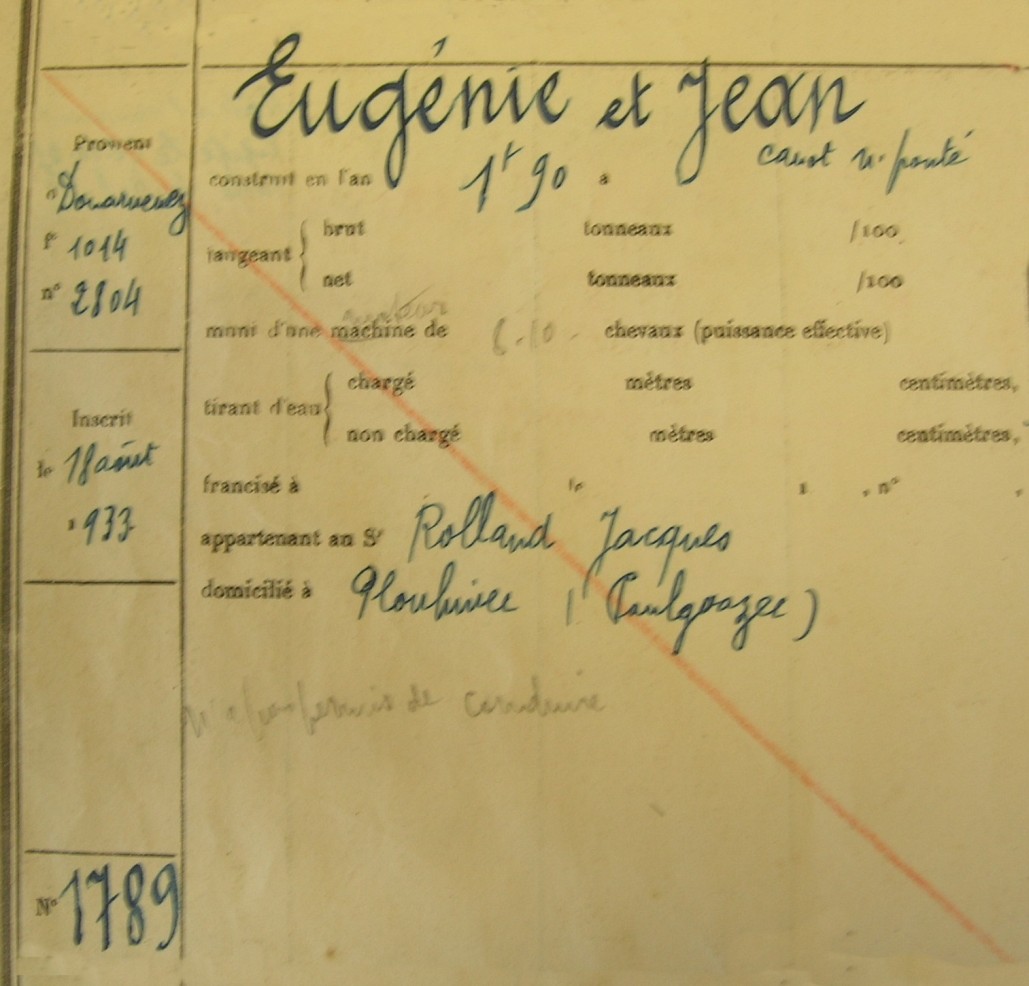 Eugénie et Jean
Provient
canot n. ponté
construit en l'an 1t 90 a
Douarnenez
brut tonneaux /100
fo 1014
jaugeant
net tonneaux /100
no 2804
moteur
muni d'une machine de 8-10 - chevaux (puissance effective)
chargé mètres centimètres,
tirant d'eau
Inscrit
non chargé mètres centimètres,
le 18 août
francisé à le 1 , no ,
1933
appartenant au Sr Rolland Jacques
domicilié à Plouhinec (Poulgoazec)
n'a pas permis de conduire
No 1789